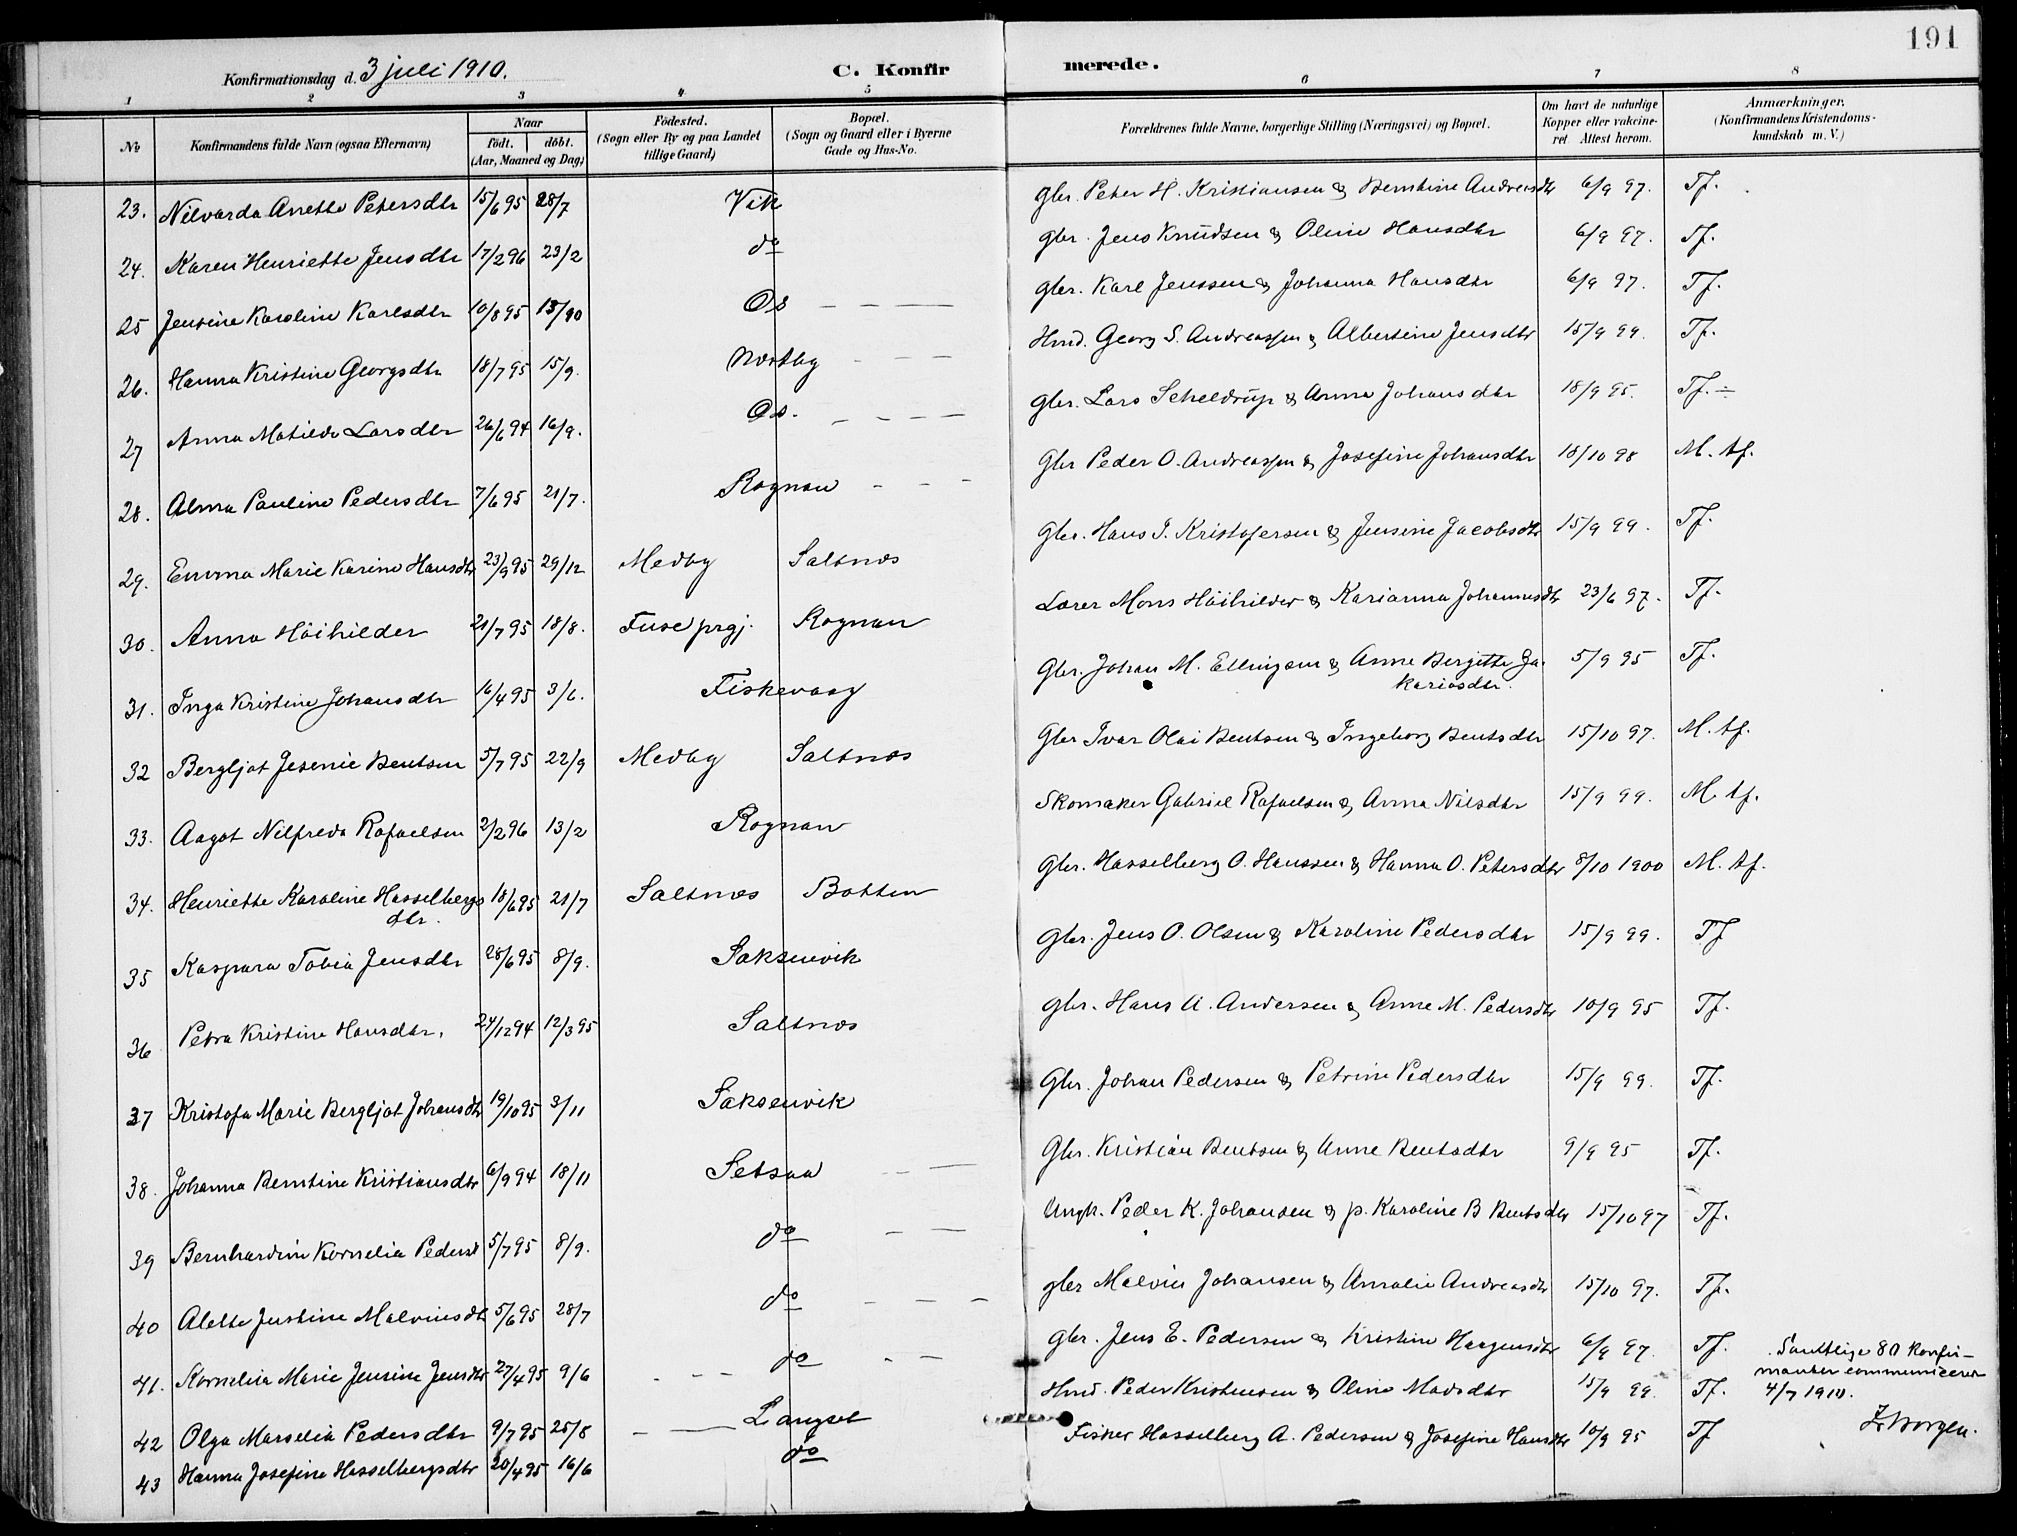 191
Konfirmationsdag d. 3 juli 1910.
C. Konfirmerede.
1 2 3 4 5 6 7 8
No
Konfirmandens fulde Navn (ogsaa Efternavn)
Naar
født. døbt.
(Aar, Maaned og Dag)
Fødested.
(Sogn eller By og paa Landet
tillige Gaard)
Bopæl.
(Sogn og Gaard eller i Byerne
Gade og Hus-No.
Forældrenes fulde Navne, borgerlige Stilling (Næringsvei) og Bopæl.
Om havt de naturlige
Kopper eller vakcine-
ret Attest herom.
Anmærkninger.
(Konfirmandens Kristendoms-
kundskab m. V.)
23. Nilvarda Anette Petersdtr 15/6 95 28/7 Vik Gbr. Peter H. Kristiansen & Berntine Andreasdtr 6/9 97. Tf.
24. Karen Henriette Jensdtr 17/2 96 23/2 do Gbr. Jens Knudsen & Oline Hansdtr 6/9 97. Tf.
25 Jensine Karoline Karlsdtr 10/8 95 Os Gbr. Karl Jenssen & Johanna Hansdtr 6/9 97. Tf.
26. Hanna Kristine Georgsdtr 18/7 95 15/9. Nestby Hmd. Georg S. Andreassen & Albertine Jensdtr 15/9 99. Tf.
27 Anna Matilde Larsdtr 26/6 94 16/9. Os. Gbr. Lars Scheldrup & Anna Johansdtr 18/9 95. Tf. ÷
28. Alma Pauline Pedersdtr 7/6 95 21/7. Rognan Gbr Peder O. Andreassen & Josefine Johansdtr 18/10 98 M. tf.
29. Emma Marie Karine Hansdtr 23/9 95 29/12 Medby Saltnes Gbr. Hans J. Kristofersen & Jensine Jacobsdtr 15/9 99. Tf.
30. Anna Höihilder 21/7 95 18/8. Fuse prgj. Rognan Lærer Mons Höihilder & Karianna Johannesdtr 23/6 97. Tf.
31. Inga Kristine Johansdtr 16/4 95 3/6. Fiskevaag Gbr. Johan M. Ellingsen & Anne Bergitte Za-
kariasdtr. 5/9 95 Tf.
32 Bergljot Jesenie Bentsen 5/7 95 22/9 Medby Saltnes Gbr Ivar Olai Bentsen & Ingeborg Bentsdtr 15/10 97. M. tf.
33. Aagot Nilfreda Rafaelsen 2/2 96 13/2 Rognan Skomaker Gabriel Rafaelsen & Anna Nilsdtr 15/9 99. M. tf.
34. Henriette Karoline Hasselbergs
dtr. 18/6 95 21/7 Saltnes Botten Gbr. Hasselberg O. Hanssen & Hanna O. Petersdtr 8/10 1900 M. tf.
35 Kaspara Tobia Jensdtr 28/6 95 8/9. Saksenvik Gbr. Jens O. Olsen & Karoline Pedersdtr 15/9 99. Tf
36 Petra Kristine Hansdtr. 24/12 94 12/3 95 Saltnes Gbr. Hans A. Andersen & Anne M. Pedersdtr 10/9 95 Tf.
37 Kristofa Marie Bergljot Johansdtr 19/10 95 3/11 Saksenvik Gbr. Johan Pedersen & Petrine Pedersdtr 15/9 99. Tf.
38. Johanna Berntine Kristiansdtr 6/9 94 18/11 Setsaa Gbr. Kristian Bentsen & Anne Bentsdtr 9/9 95 Tf.
39 Bernhardine Kornelia Pedersd 5/7 95 8/9. do Ungk. Peder K. Johansen & p. Karoline B Bentsdtr 15/10 97 Tf.
40 Alette Justine Malvinsdtr 5/6 95 28/7 do gbr Malvin Johansen & Amalie Andreasdtr 15/10 97. Tf.
41. Kornelia Marie Jensine Jensdtr 27/4 95 9/6 do Gbr. Jens E. Pedersen & Kristine Haagensdtr 6/9 97. Tf.
42 Olga Marselia Pedersdtr 9/7 95 25/8 Langset Hmd. Peder Kristensen & Oline Madsdtr 15/9 99. Tf.
43 Hanna Josefine Hasselbergsdtr 20/4 95 16/6 do Fisker Hasselberg A. Pedersen & Josefine Hansdtr 10/9 95 Tf
Samtlige 80 konfir-
manter communicerer
4/7 1910.
Borgen.